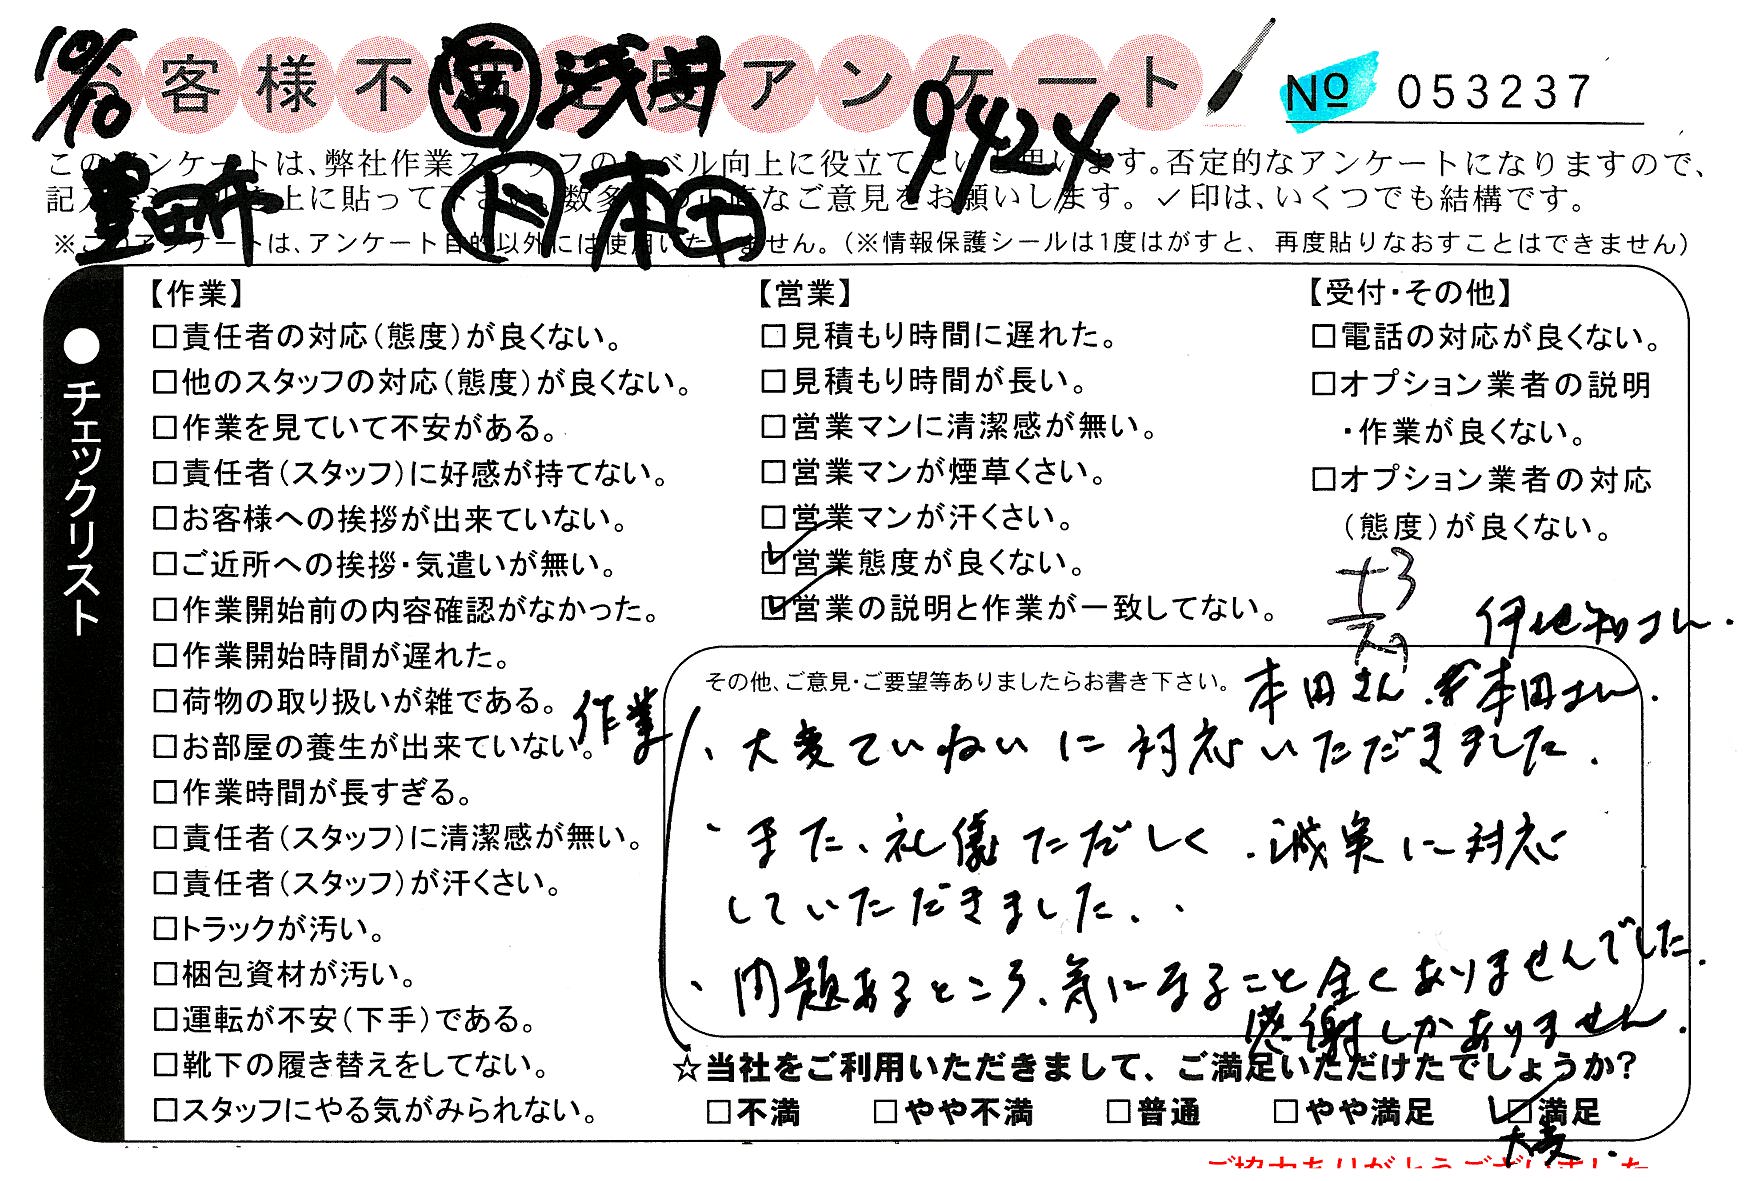 10/10
お客様不満足度アンケート
営 浅井
№ 053237
9424
このアンケートは、弊社作業スタッフのレベル向上に役立てたいと思います。否定的なアンケートになりますので、
上に貼って下さい。数多くの正直なご意見をお願いします。✓印は、いくつでも結構です。
豊田市 本田
※このアンケートは、アンケート目的以外には使用いたしません。(※情報保護シールは1度はがすと、再度貼りなおすことはできません)
●チェックリスト
【作業】
□責任者の対応(態度)が良くない。
□他のスタッフの対応(態度)が良くない。
□作業を見ていて不安がある。
□責任者(スタッフ)に好感が持てない。
□お客様への挨拶が出来ていない。
□ご近所への挨拶・気遣いが無い。
□作業開始前の内容確認がなかった。
□作業開始時間が遅れた。
□荷物の取り扱いが雑である。
□お部屋の養生が出来ていない。
□作業時間が長すぎる。
□責任者(スタッフ)に清潔感が無い。
□責任者(スタッフ)が汗くさい。
□トラックが汚い。
□梱包資材が汚い。
□運転が不安(下手)である。
□靴下の履き替えをしてない。
□スタッフにやる気がみられない。
【営業】
□見積もり時間に遅れた。
□見積もり時間が長い。
□営業マンに清潔感が無い。
□営業マンが煙草くさい。
□営業マンが汗くさい。
☑営業態度が良くない。
☑営業の説明と作業が一致してない。
【受付・その他】
□電話の対応が良くない。
□オプション業者の説明
・作業が良くない。
□オプション業者の対応
(態度)が良くない。
+3
伊地知さん.
その他、ご意見・ご要望等ありましたらお書き下さい。
本田さん. 本田さん.
作業
・大変ていねいに対応いただきました.
・また、礼儀ただしく.誠実に対応
していただきました..
・問題あるところ、気になること全くありませんでした.
感謝しかありません.
☆当社をご利用いただきまして、ご満足いただけたでしょうか?
□不満 □やや不満 □普通 □やや満足 ☑満足
大変.
ご協力ありがとうございました